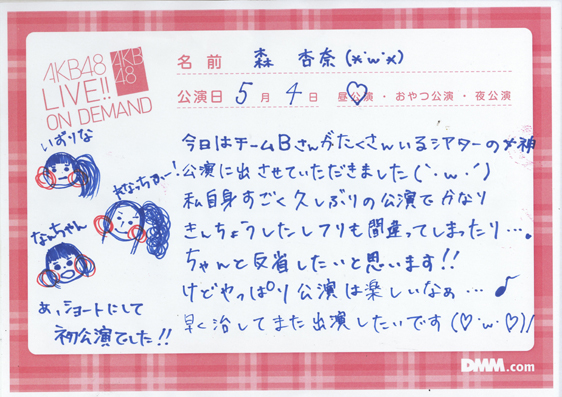 AKB48
LIVE!!
ON DEMAND
AKB
48
名前 森 杏奈(*´w`*)
公演日 5月4日 昼公演・おやつ公演・夜公演
いずりな
きなっちょー!
なんちゃん
あ、ショートにして
初公演でした!!
今日はチームBさんがたくさんいるシアターの女神
公演に出させていただきました(`・w・´)
私自身すごく久しぶりの公演でかなり
きんちょうしたしフリも間違ってしまったり…。
ちゃんと反省したいと思います!!
けどやっぱり公演は楽しいなぁ…♪
早く治してまた出演したいです(♡・w・♡)/
DMM.com